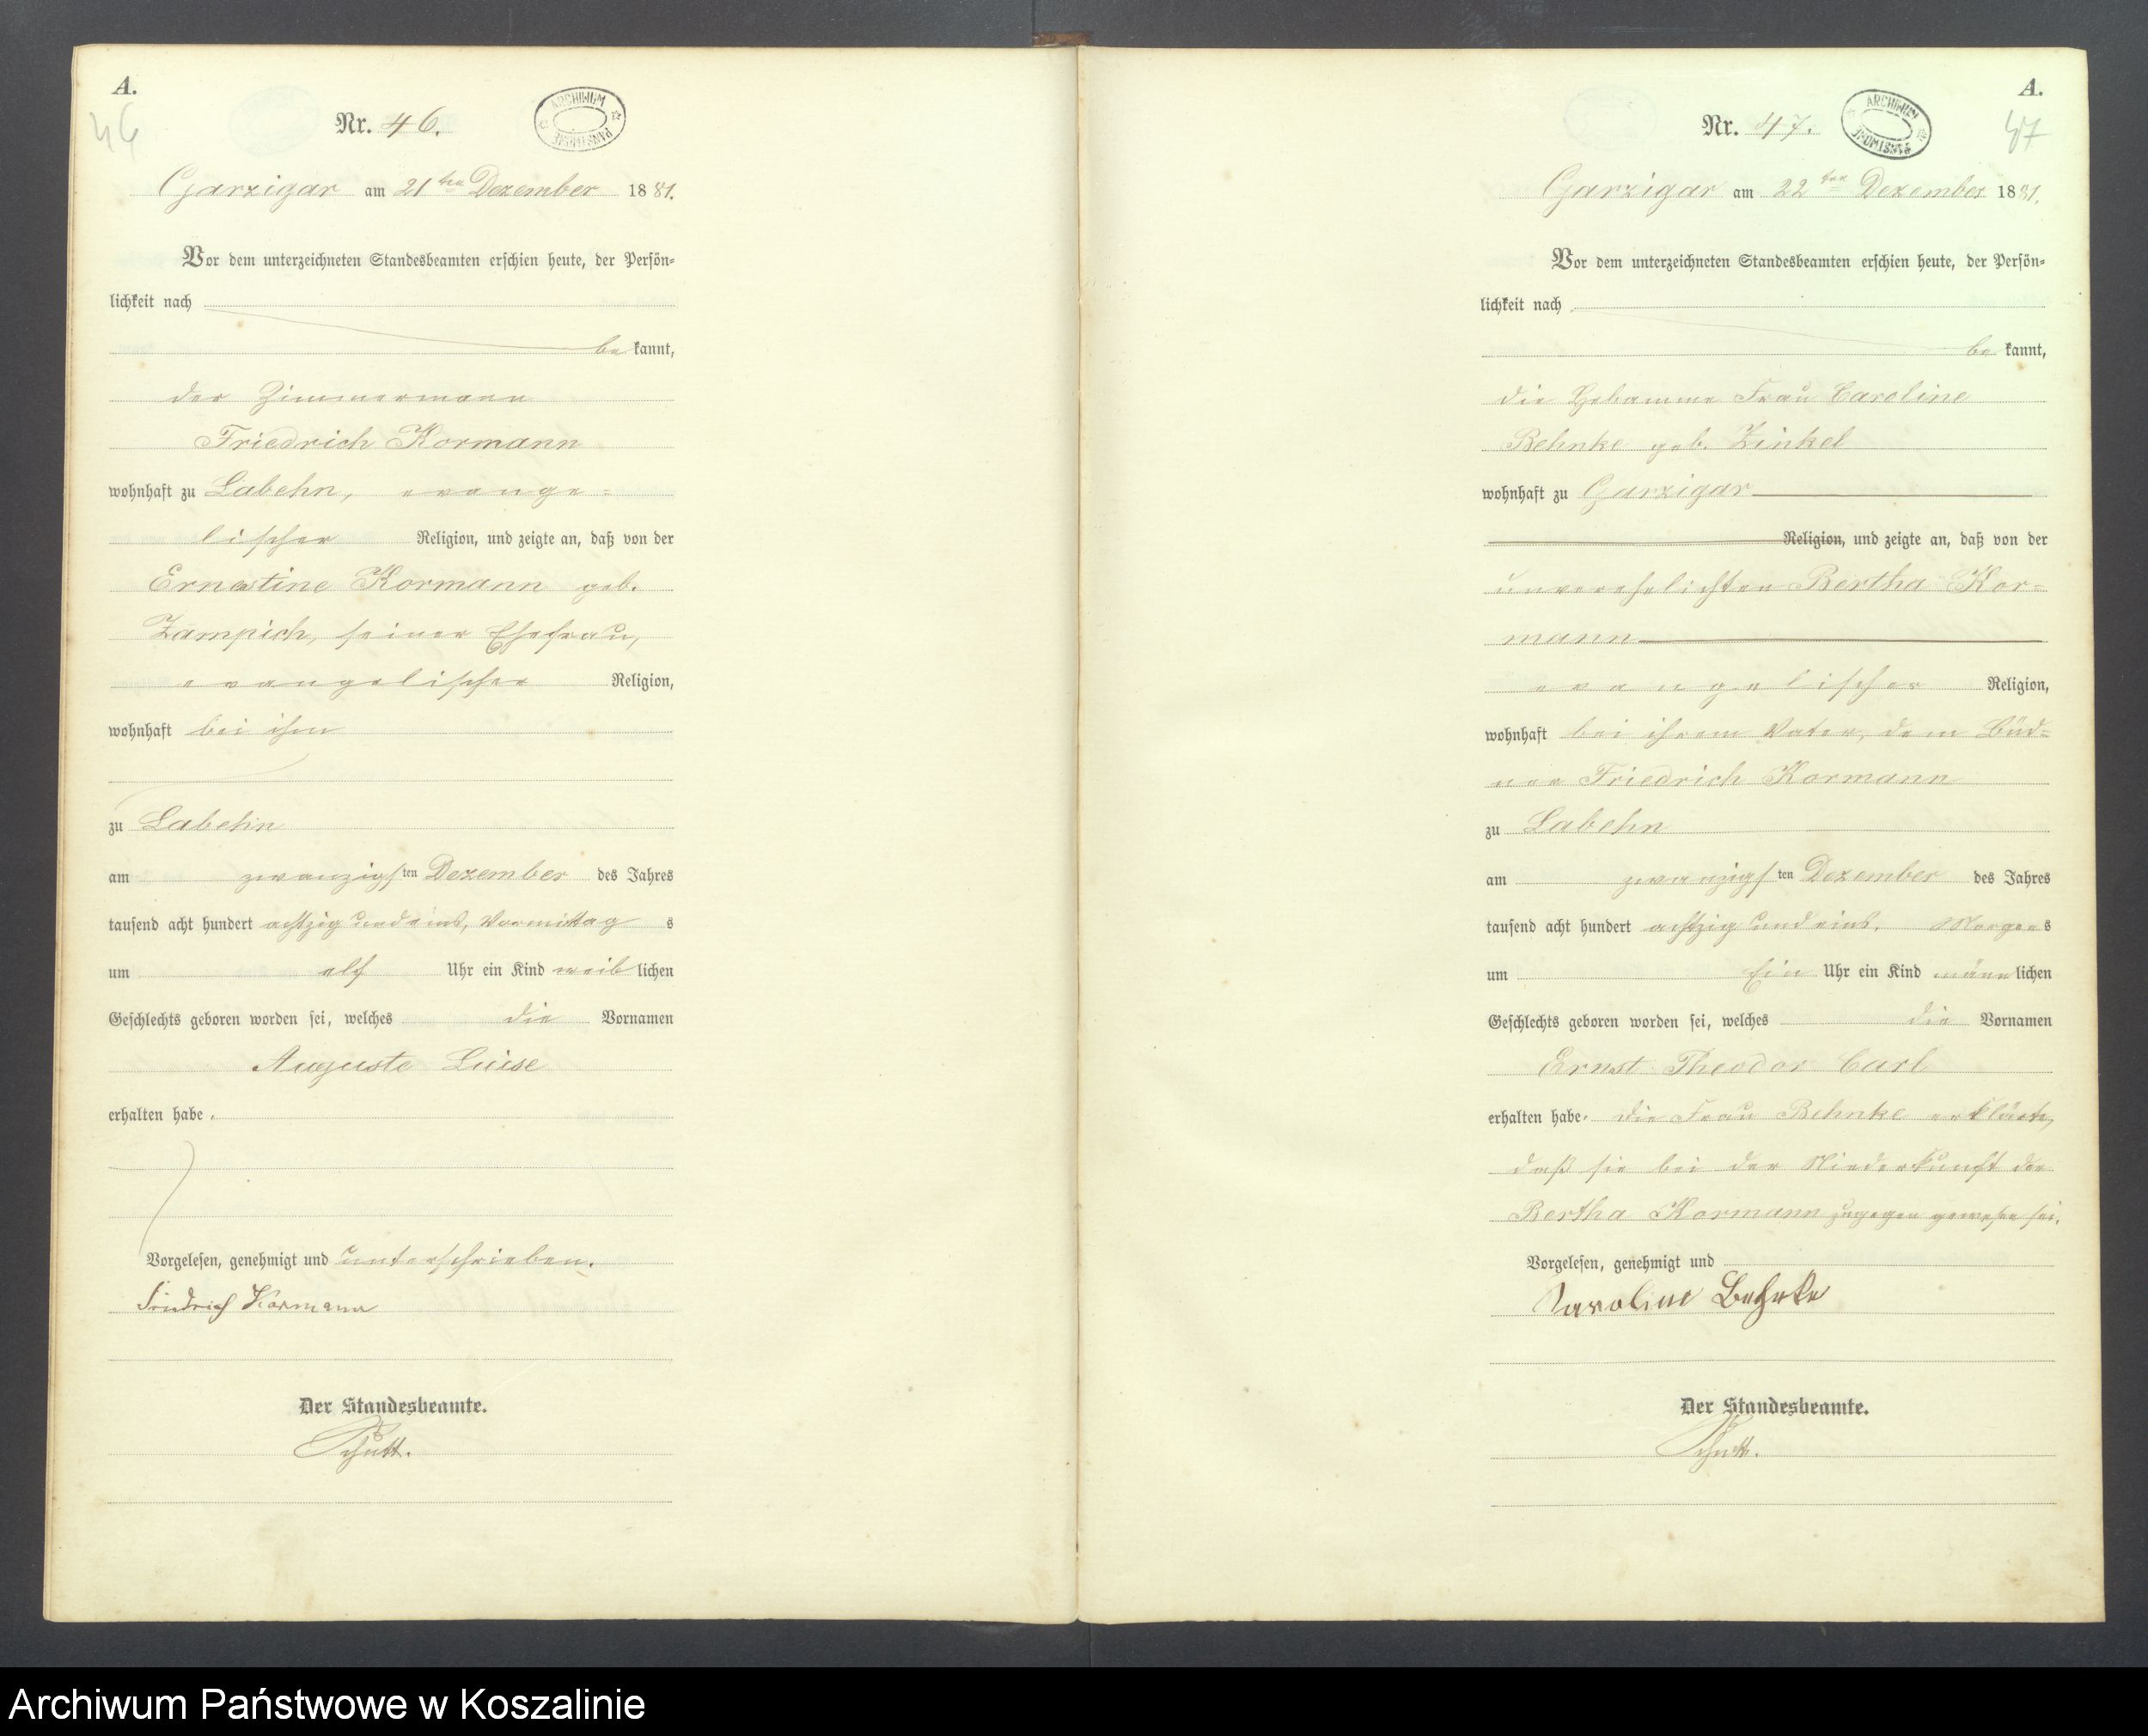 A.
46
Nr. 46.
ARCHIWUM PAŃSTWOWE
Garzigar am 21ten Dezember 1881.
Vor dem unterzeichneten Standesbeamten erschien heute, der Persön-
lichkeit nach
be kannt,
der Zimmermann
Friedrich Kormann
wohnhaft zu Labehn, evange-
lischer Religion, und zeigte an, daß von der
Ernestine Kormann geb.
Zampich, seiner Ehefrau,
evangelischer Religion,
wohnhaft bei ihm
zu Labehn
am zwanzigsten Dezember des Jahres
tausend acht hundert achtzig und eins, Vormittag s
um elf Uhr ein Kind weiblichen
Geschlechts geboren worden sei, welches die Vornamen
Auguste Luise
erhalten habe.
Vorgelesen, genehmigt und unterschrieben.
Friedrich Kormann
Der Standesbeamte.
Schutt.
A.
47
Nr. 47.
ARCHIWUM PAŃSTWOWE
Garzigar am 22ten Dezember 1881.
Vor dem unterzeichneten Standesbeamten erschien heute, der Persön-
lichkeit nach
be kannt,
die Hebamme Frau Caroline
Behnke geb. Zinkel
wohnhaft zu Garzigar
Religion, und zeigte an, daß von der
unverehelichten Bertha Kor-
mann
evangelischer Religion,
wohnhaft bei ihrem Vater, dem Büd-
ner Friedrich Kormann
zu Labehn
am zwanzigsten Dezember des Jahres
tausend acht hundert achtzig und eins, Morgens
um Ein Uhr ein Kind männlichen
Geschlechts geboren worden sei, welches die Vornamen
Ernst Theodor Carl
erhalten habe. Die Frau Behnke erklärte,
daß sie bei der Niederkunft der
Bertha Kormann zugegen gewesen sei.
Vorgelesen, genehmigt und
Caroline Behnke
Der Standesbeamte.
Schutt.
Archiwum Państwowe w Koszalinie